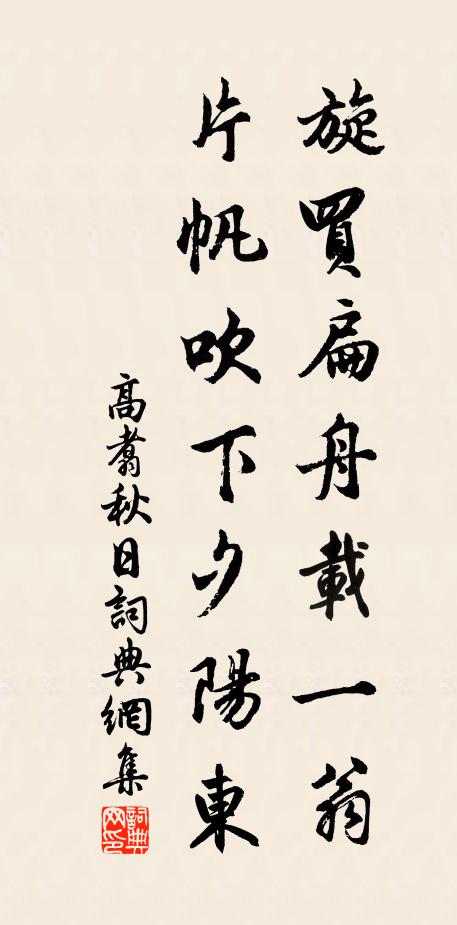 旋買扁舟載一翁
片帆吹下夕陽東
高翥秋日詞典網集
詞典
網印